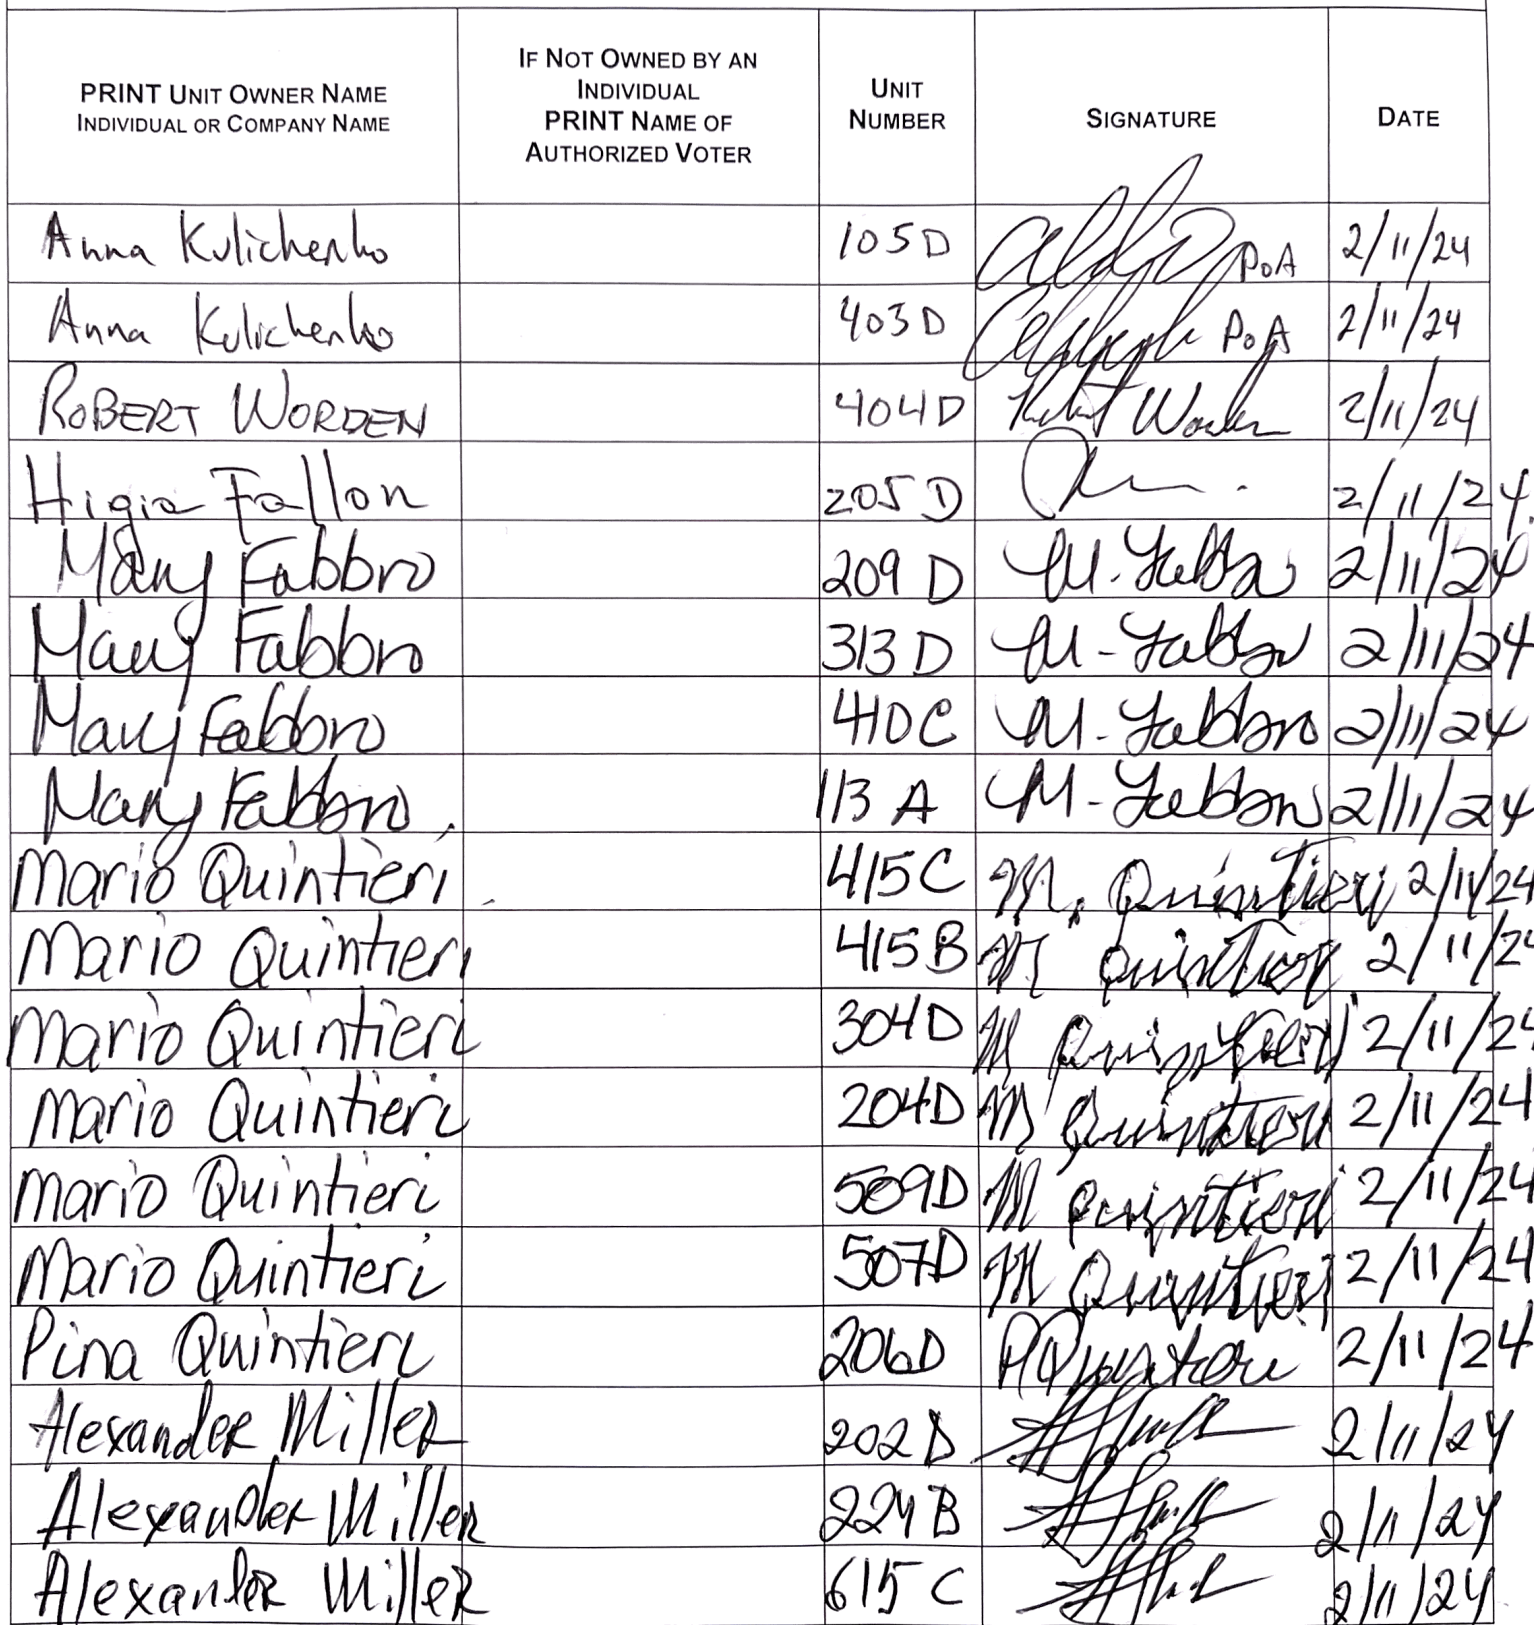 PRINT UNIT OWNER NAME
INDIVIDUAL OR COMPANY NAME
IF NOT OWNED BY AN
INDIVIDUAL
PRINT NAME OF
AUTHORIZED VOTER
UNIT
NUMBER
SIGNATURE
DATE
Anna Kulichenko 105D PoA 2/11/24
Anna Kulichenko 403D PoA 2/11/24
ROBERT WORDEN 404D Robert Worden 2/11/24
Higia Fallon 205D 2/11/24
Mary Fabbro 209 D M. Fabbro 2/11/24
Mary Fabbro 313 D M - Fabbro 2/11/24
Mary Fabbro 410C M - Fabbro 2/11/24
Mary Fabbro 113 A M - Fabbro 2/11/24
Mario Quintieri 415C M. Quintieri 2/11/24
Mario Quintieri 415B M Quintieri 2/11/24
Mario Quintieri 304D M Quintieri 2/11/24
Mario Quintieri 204D M Quintieri 2/11/24
Mario Quintieri 509D M Quintieri 2/11/24
Mario Quintieri 507D M Quintieri 2/11/24
Pina Quintieri 206D 2/11/24
Alexander Miller 202 D 2/11/24
Alexander Miller 224 B 2/11/24
Alexander Miller 615 C 2/11/24